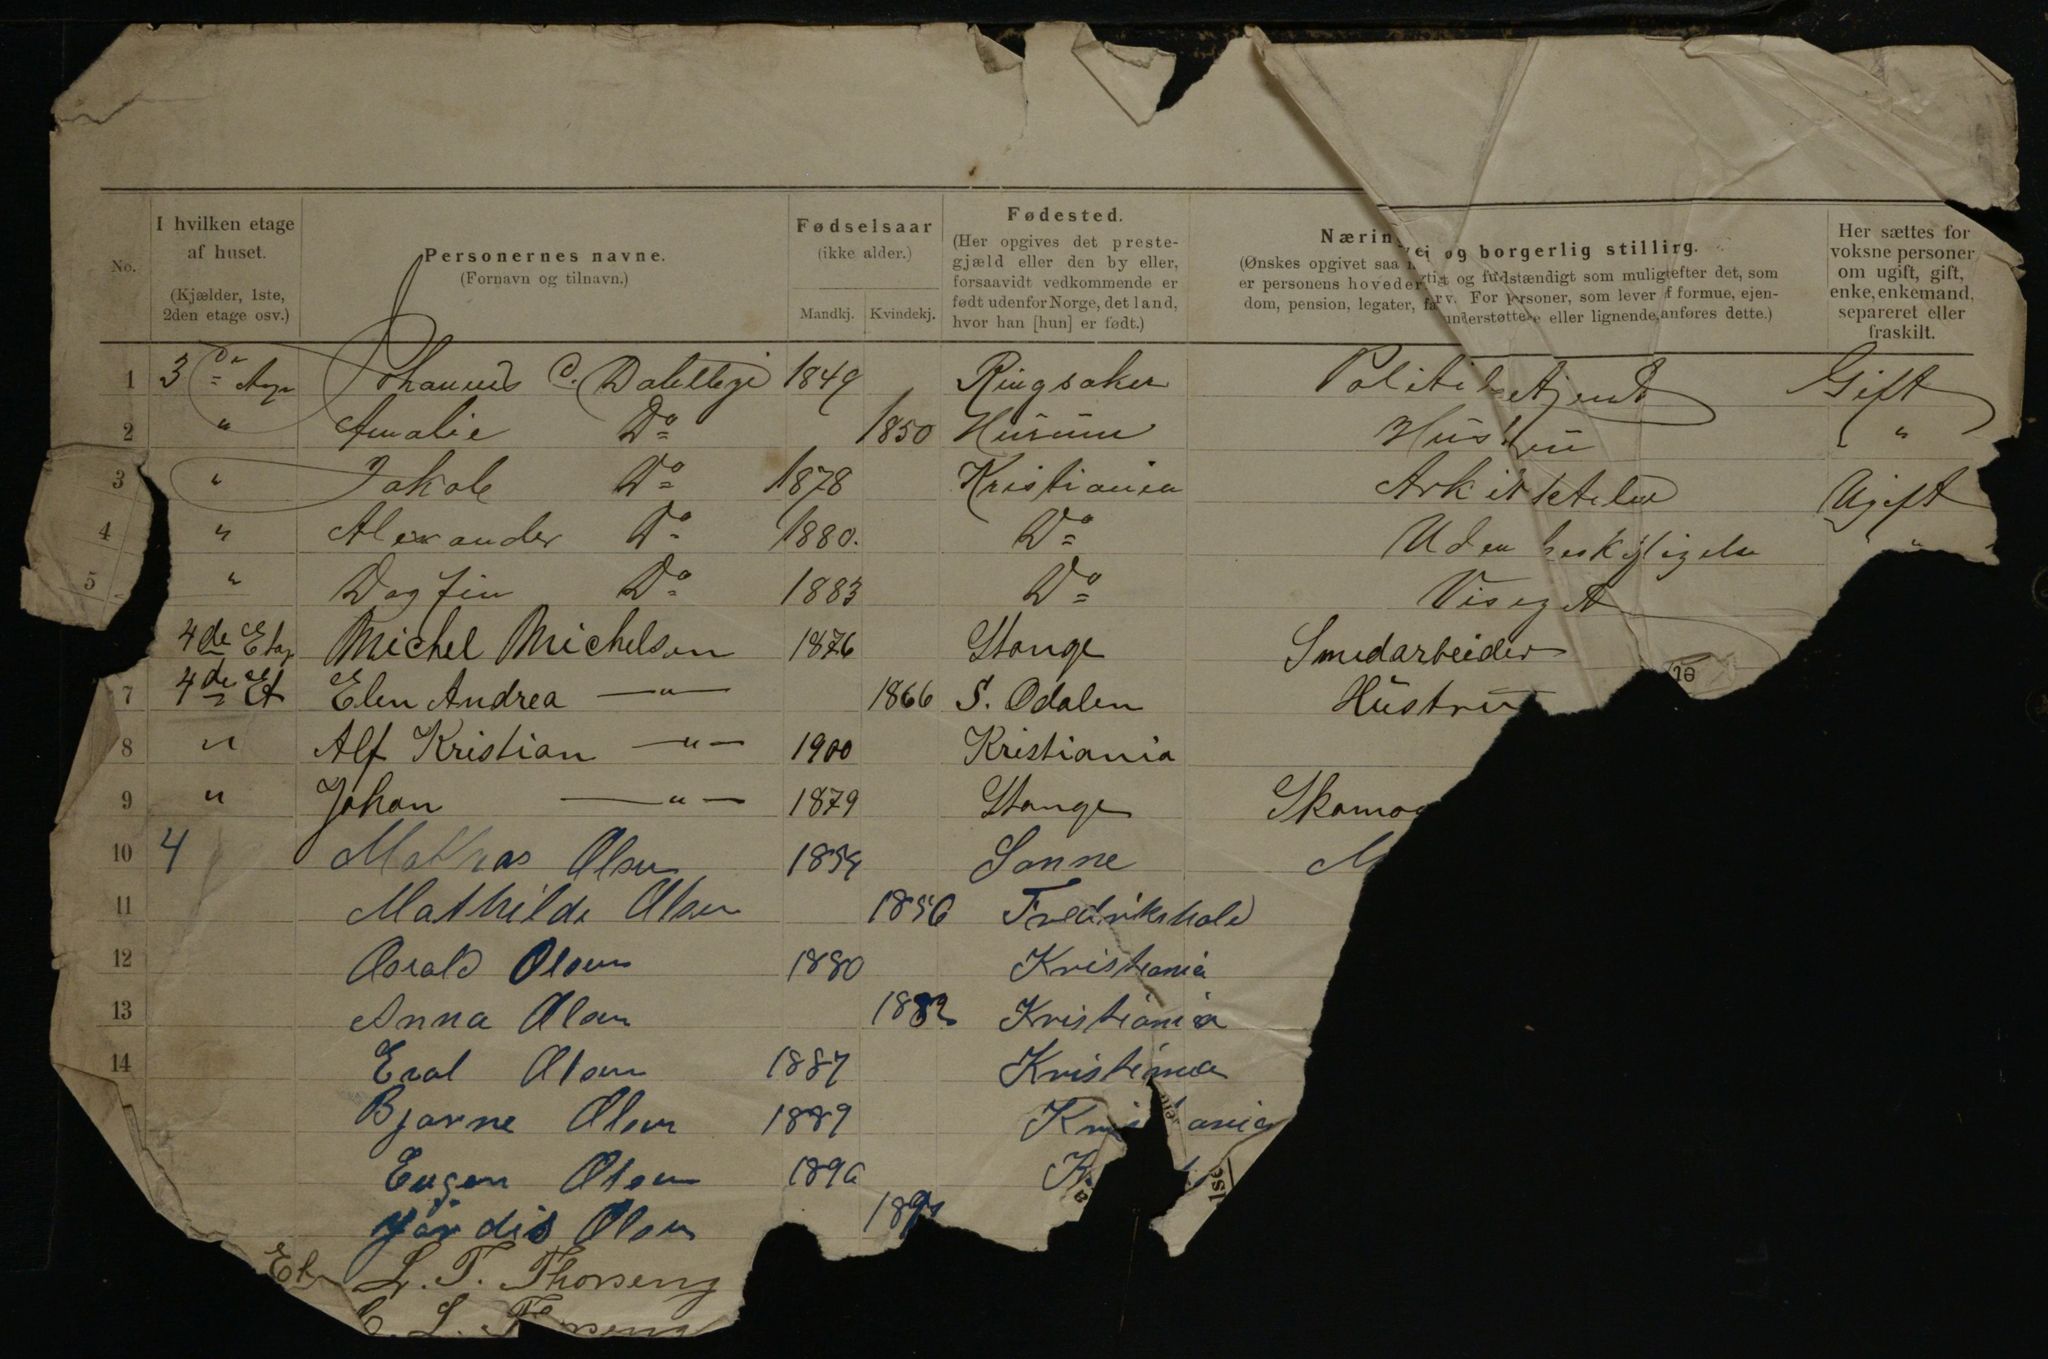 No.
I hvilken etage af huset. (Kjælder, 1ste, 2den etage osv.)
Personernes navne. (Fornavn og tilnavn.)
Fødselsaar (ikke alder.) Mandkj. Kvindekj.
Fødested. (Her opgives det prestegjæld eller den by eller, forsaavidt vedkommende er født udenfor Norge, det land, hvor han [hun] er født.)
Næringsvei og borgerlig stilling. (Ønskes opgivet saa rigtig og fuldstændigt som mulig efter det, som er personens hovederhverv. For personer, som lever af formue, ejendom, pension, legater, understøttelse eller lignende, anføres dette.)
Her sættes for voksne personer om ugift, gift, enke, enkemand, separeret eller fraskilt.
1 3 Johannes C. 1849 Ringsaker Gift
2 " Amalie Do 1850 Hurum Hustru "
3 " Jakob Do 1878 Kristiania Ugift
4 " Alexander Do 1880. Do Uden beskjftigelse "
5 " Dagfin Do 1883 Do Visergt
4de Etag Michel Michelsen 1876 Stange Smedarbeider
7 4de Et Elen Andrea —"— 1866 S. Odalen Hustru
8 " Alf Kristian —"— 1900 Kristiania
9 " Johan —"— 1879 Stange Skomag
10 4 Mathias Olsen 1854 Sanne M
11 Mathilde Olsen 1856 Fredrikshald
12 Osvald Olsen 1880 Kristiania
13 Anna Olsen 1882 Kristiania
14 Eval Olsen 1887 Kristiania
Bjarne Olsen 1889 Kristiania
Eugen Olsen 189 K
Hjørdis Olsen 189
Et L. T. Thorseng